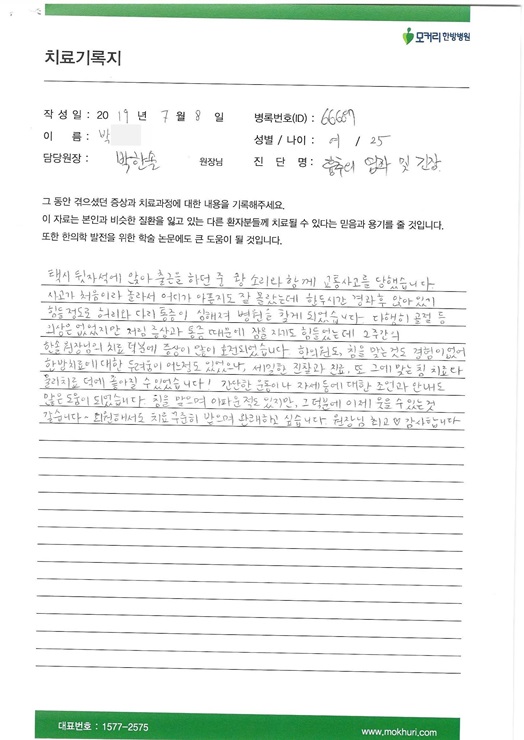 모커리한방병원
치료기록지
작 성 일 : 2019 년 7 월 8 일 병록번호(ID) : 66687
이 름 : 박 성별 / 나이 : 여 / 25
담당원장 : 박한솔 원장님 진 단 명 : 경추의 염좌 및 긴장
그 동안 겪으셨던 증상과 치료과정에 대한 내용을 기록해주세요.
이 자료는 본인과 비슷한 질환을 앓고 있는 다른 환자분들께 치료될 수 있다는 믿음과 용기를 줄 것입니다.
또한 한의학 발전을 위한 학술 논문에도 큰 도움이 될 것입니다.
택시 뒷자석에 앉아 출근을 하던 중 쾅 소리와 함께 교통사고를 당했습니다
사고가 처음이라 놀라서 어디가 아픈지도 잘 몰랐는데 한두시간 경과후 앉아 있기
힘들정도로 허리와 다리 통증이 심해져 병원을 찾게 되었습니다 다행히 골절 등
외상은 없었지만 저림 증상과 통증 때문에 잠을 자기도 힘들었는데 2주간의
한솔 원장님의 치료 덕분에 증상이 많이 호전되었습니다 한의원도, 침을 맞는것도 경험이 없어
한방치료에 대한 두려움이 어느정도 있었으나, 세밀한 진찰과 진료, 또 그에 맞는 침 치료과
물리치료 덕에 좋아질 수 있었습니다! 간단한 운동이나 자세 등에 대한 조언과 안내도
많은 도움이 되었습니다 침을 맞으며 아파 운적도 있지만, 그 덕분에 이제 웃을 수 있는것
같습니다~ 퇴원해서도 치료 꾸준히 받으며 완쾌하고 싶습니다 원장님 최고♡ 감사합니다
대표번호 : 1577-2575 www.mokhuri.com